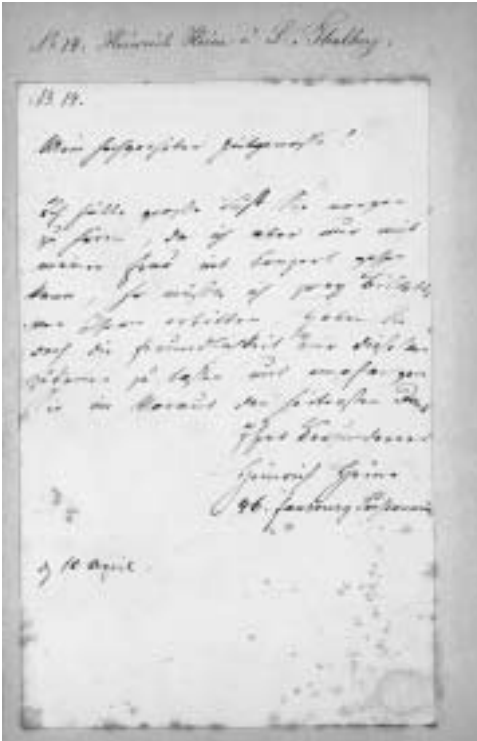 No 14. Heinrich Heine à S. Thalberg.
No. 14.
Mein hochverehrter Zeitgenosse!
Ich hätte große Lust Sie morgen
zu hören, da ich aber nur mit
meiner Frau ins Konzert gehen
kann, so müßte ich zwey Billette
von Ihnen erbitten. Haben Sie
doch die Freundlichkeit mir dieselben
zu lassen und empfangen
Sie im Voraus den
Ihres
Heinrich Heine
46. Faubourg Poissonnière
d 10 April.